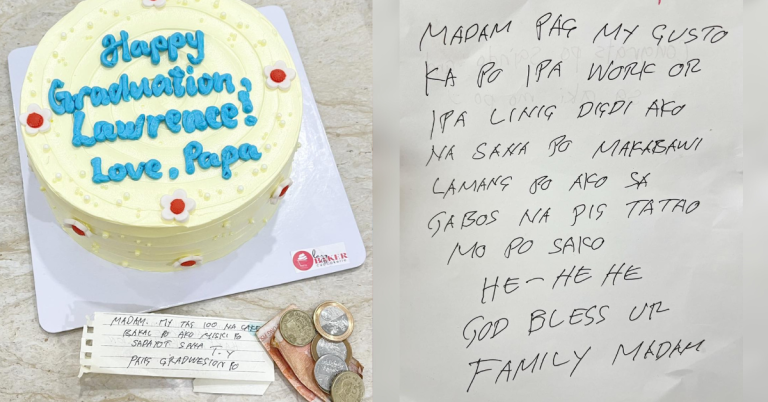 Happy
Graduation,
Lawrence!
Love, Papa
BAKER
MADAM. MY TAG 100 NA CAKE
BAKAL PO AKO MISKI PO
SADAYOT SANA
T.Y
PAIG GRADWESION PO
MADAM PAG MY GUSTO
KA PO IPA WORK OR
IPA LINIG DIGDI AKO
NA SANA PO MAKABAWI
LAMANG PO AKO SA
GABOS NA PIG TATAO
MO PO SAKO
HE-HE HE
GOD BLESS UR
FAMILY MADAM